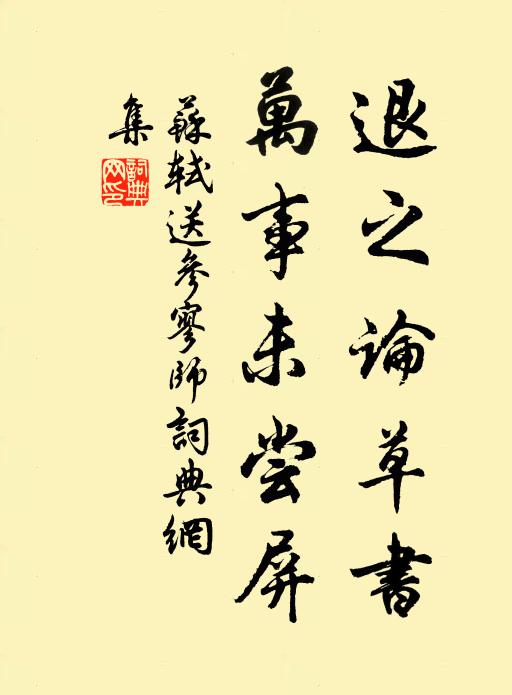 退之論草書
萬事未尝屏
蘇軾送參寥師詞典網
集
詞典網印